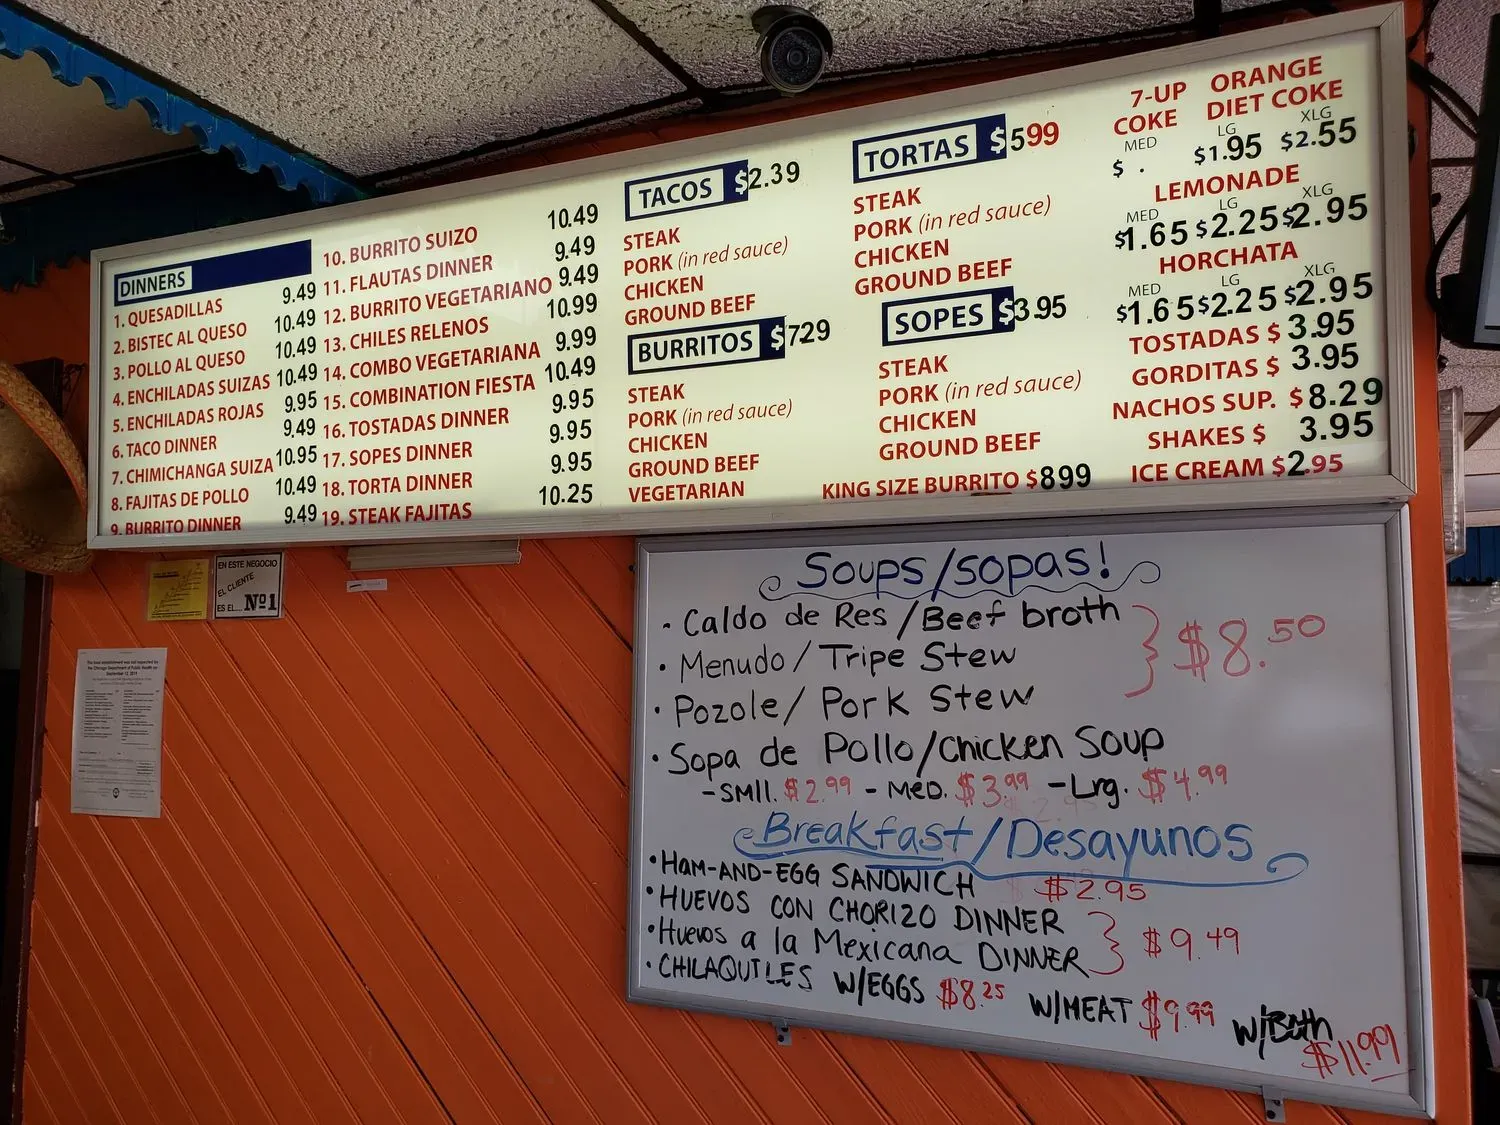 DINNERS
1. QUESADILLAS 9.49
2. BISTEC AL QUESO 10.49
3. POLLO AL QUESO 10.49
4. ENCHILADAS SUIZAS 10.49
5. ENCHILADAS ROJAS 9.95
6. TACO DINNER 9.49
7. CHIMICHANGA SUIZA 10.95
8. FAJITAS DE POLLO 10.49
9. BURRITO DINNER 9.49
10. BURRITO SUIZO 10.49
11. FLAUTAS DINNER 9.49
12. BURRITO VEGETARIANO 9.49
13. CHILES RELENOS 10.99
14. COMBO VEGETARIANA 9.99
15. COMBINATION FIESTA 10.49
16. TOSTADAS DINNER 9.95
17. SOPES DINNER 9.95
18. TORTA DINNER 9.95
19. STEAK FAJITAS 10.25
TACOS $2.39
STEAK
PORK (in red sauce)
CHICKEN
GROUND BEEF
BURRITOS $729
STEAK
PORK (in red sauce)
CHICKEN
GROUND BEEF
VEGETARIAN
TORTAS $599
STEAK
PORK (in red sauce)
CHICKEN
GROUND BEEF
SOPES $3.95
STEAK
PORK (in red sauce)
CHICKEN
GROUND BEEF
KING SIZE BURRITO $899
7-UP ORANGE
COKE DIET COKE
MED LG XLG
$ . $1.95 $2.55
LEMONADE
MED LG XLG
$1.65 $2.25 $2.95
HORCHATA
MED LG XLG
$1.65 $2.25 $2.95
TOSTADAS $ 3.95
GORDITAS $ 3.95
NACHOS SUP. $8.29
SHAKES $ 3.95
ICE CREAM $2.95
EN ESTE NEGOCIO
EL CLIENTE
ES EL... Nº1
Soups/sopas!
• Caldo de Res/Beef broth
• Menudo/Tripe Stew $8.50
• Pozole/Pork Stew
• Sopa de Pollo/Chicken Soup
-SMll. $2.99 - MED. $3.99 -Lrg. $4.99
Breakfast/Desayunos
• HAM-AND-EGG SANDWICH $2.95
• HUEVOS CON CHORIZO DINNER
• Huevos a la Mexicana DINNER $9.49
• CHILAQUILES W/EGGS $8.25 W/MEAT $9.99 W/Both
$11.99